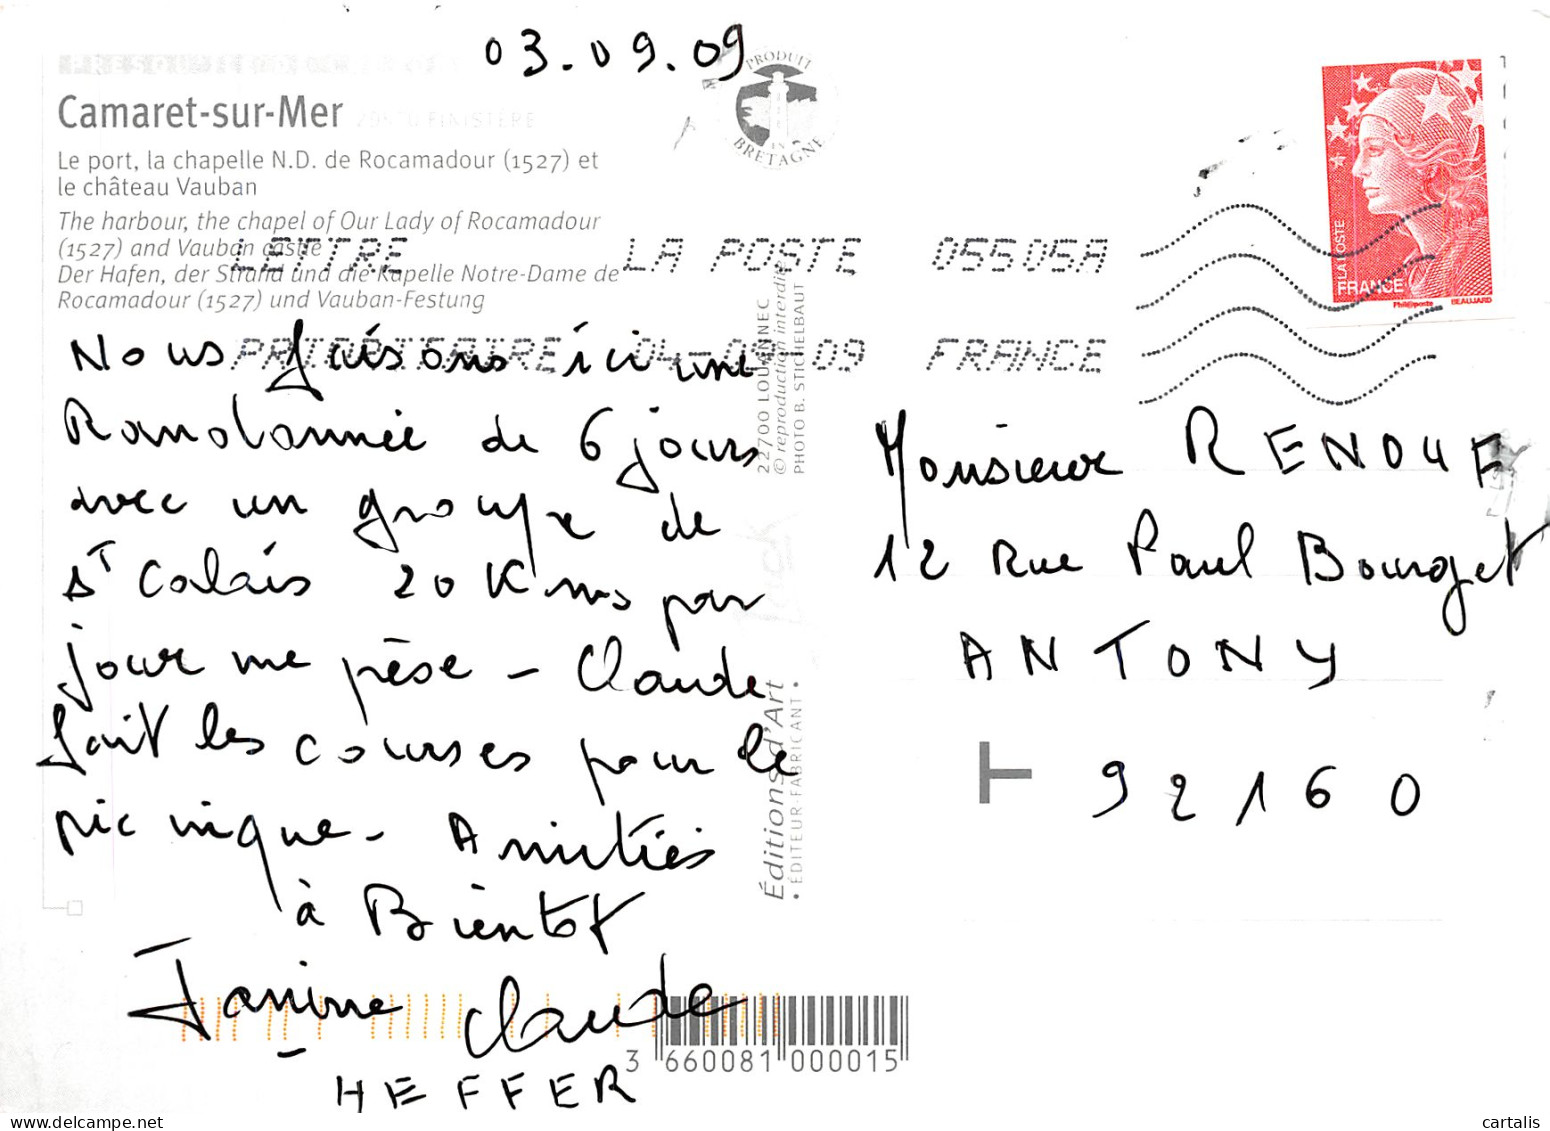 03.09.09
Camaret-sur-Mer
29570 FINISTÈRE
Le port, la chapelle N.D. de Rocamadour (1527) et
le château Vauban
The harbour, the chapel of Our Lady of Rocamadour
(1527) and Vauban castle
Der Hafen, der Strand und die Kapelle Notre-Dame de
Rocamadour (1527) und Vauban-Festung
PRODUIT EN BRETAGNE
LETTRE LA POSTE 05505A
PRIORITAIRE 04-09-09 FRANCE
LA POSTE
FRANCE
Phil@poste BEAUJARD
Nous faisons ici une
Randonnée de 6 jours
avec un groupe de
ST Calais 20 Kms par
jour me pèse - Claude
fait les courses pour le
pic nique - Amitiés
à Bientot
Janine Claude
HEFFER
22700 LOUANNEC
© reproduction interdite
PHOTO B. STICHELBAUT
Éditions d'Art
Jack
• ÉDITEUR-FABRICANT •
Monsieur RENOUF
12 Rue Paul Bourget
ANTONY
92160
3 660081 000015
cartalis.com